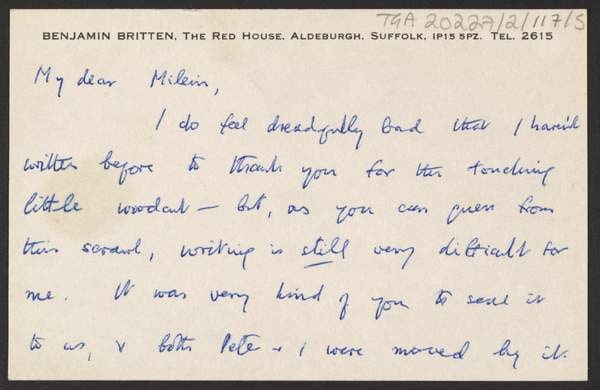 TGA 20227/2/117/5
BENJAMIN BRITTEN, THE RED HOUSE, ALDEBURGH, SUFFOLK, IP15 5PZ. TEL. 2615
My dear Milein,
I do feel dreadfully bad that I haven't
written before to thank you for the touching
little woodcut — but, as you can guess from
this scrawl, writing is still very difficult for
me. It was very kind of you to send it
to us, & both Peter & I were moved by it.